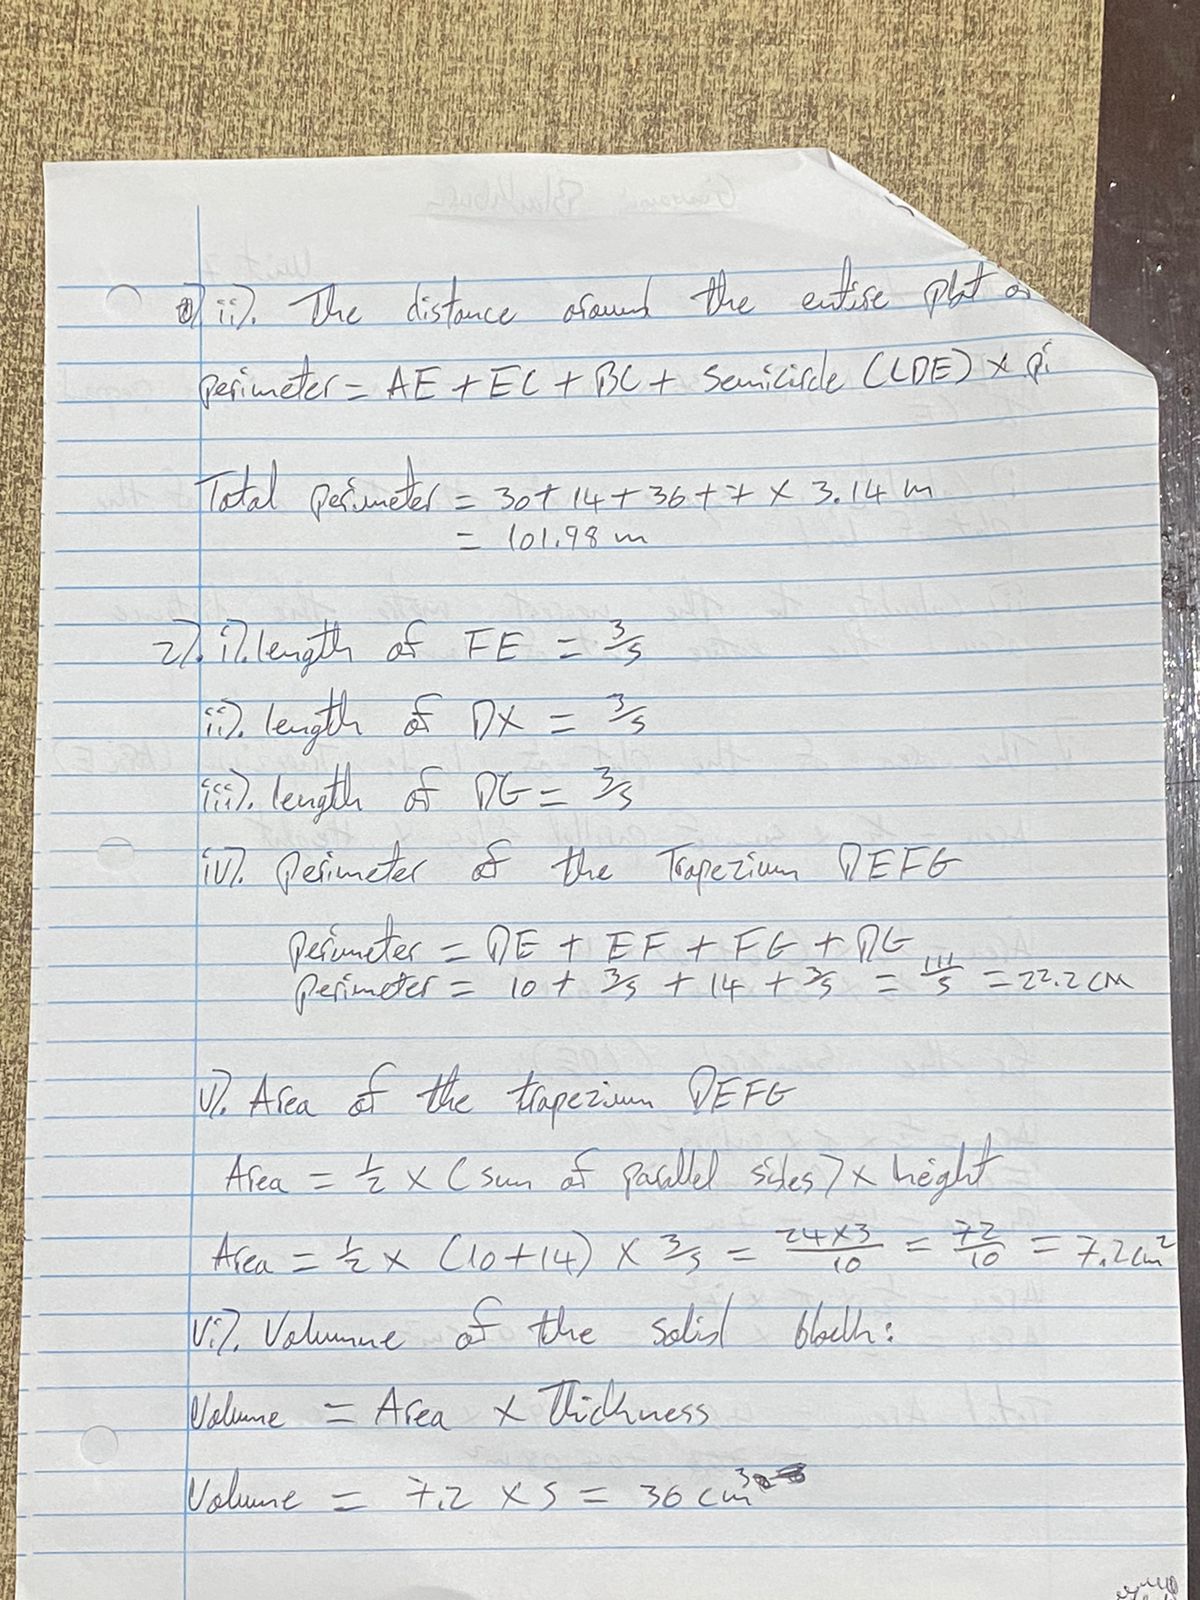 ii). The distance around the entire plot or
perimeter = AE + EC + BC + Semicircle (CDE) x pi
Total perimeter = 30 + 14 + 36 + 7 x 3.14 m
= 101.98 m
2). i). length of FE = 3/5
ii). length of DX = 3/5
iii). length of DG = 3/5
iv). Perimeter of the Trapezium DEFG
perimeter = DE + EF + FG + DG
perimeter = 10 + 3/5 + 14 + 3/5 = 111/5 = 22.2 cm
v). Area of the trapezium DEFG
Area = 1/2 x (sum of parallel sides) x height
Area = 1/2 x (10+14) x 3/5 = 24x3/10 = 72/10 = 7.2 cm²
vi). Volumne of the solid block:
Volume = Area x Thickness
Volume = 7.2 x 5 = 36 cm³